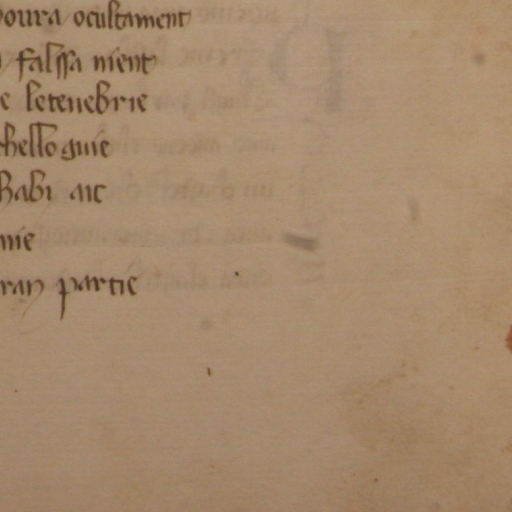 oura ocultament
falssa nient
e letenebrie
chello guie
habi aic
nie
ran partie